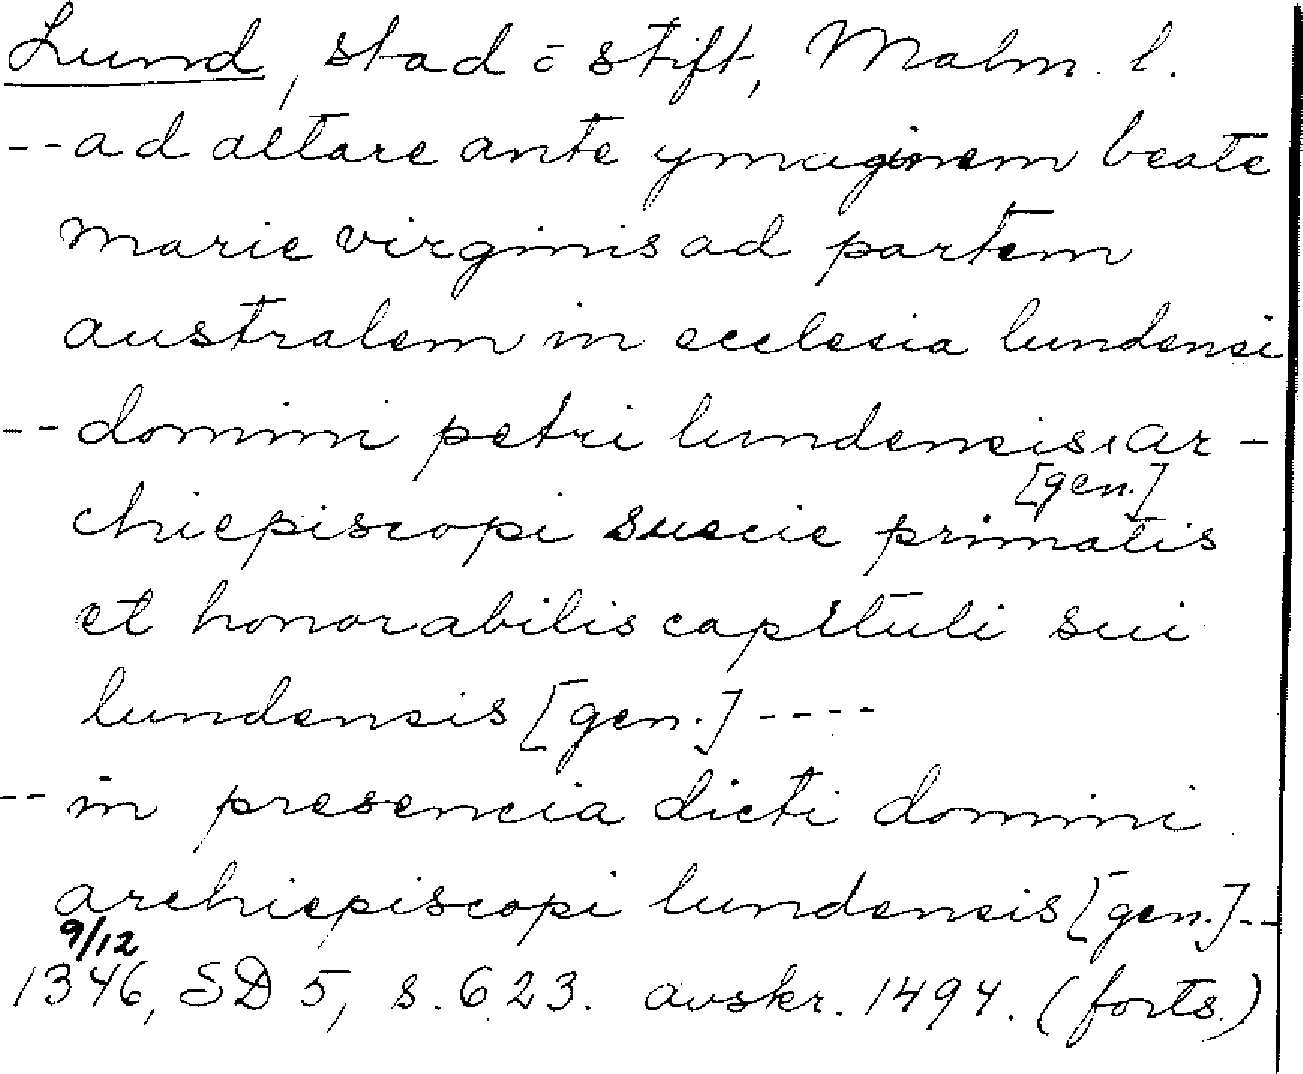 Lund, stad o stift, Malm. l.
-- ad altare ante ymaginem beate
marie virginis ad partem
australem in ecclesia lundensi
-- domini petri lundensis, ar-
[gen.]
chiepiscopi suecie primatis
et honorabilis capituli sui
lundensis [gen.] ----
-- in presencia dicti domini
archiepiscopi lundensis [gen.] --
9/12
1346, SD 5, s. 623. avskr. 1494. (forts.)